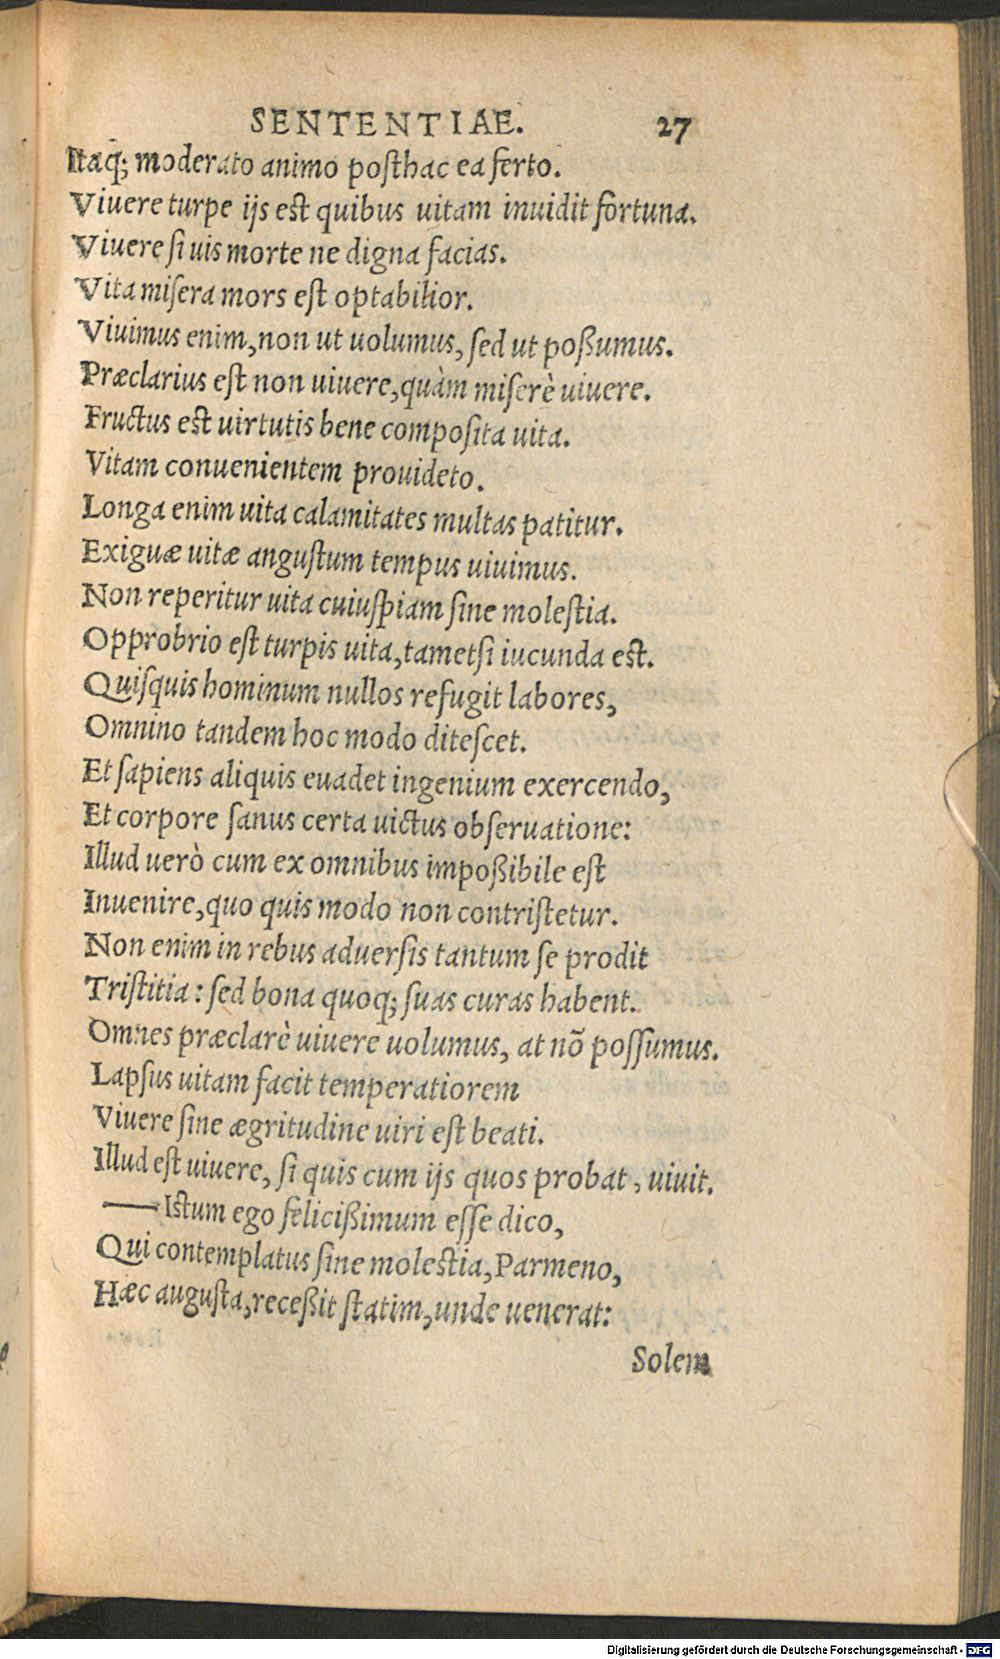 SENTENTIAE. 27
Itaq; moderato animo posthac ea ferto.
Viuere turpe ijs est quibus uitam inuidit fortuna.
Viuere si uis morte ne digna facias.
Vita misera mors est optabilior.
Viuimus enim, non ut uolumus, sed ut poßumus.
Præclarius est non uiuere, quàm miserè uiuere.
Fructus est uirtutis bene composita uita.
Vitam conuenientem prouideto.
Longa enim uita calamitates multas patitur.
Exiguæ uitæ angustum tempus uiuimus.
Non reperitur uita cuiuspiam sine molestia.
Opprobrio est turpis uita, tametsi iucunda est.
Quisquis hominum nullos refugit labores,
Omnino tandem hoc modo ditescet.
Et sapiens aliquis euadet ingenium exercendo,
Et corpore sanus certa uictus obseruatione:
Illud uerò cum ex omnibus impoßibile est
Inuenire, quo quis modo non contristetur.
Non enim in rebus aduersis tantum se prodit
Tristitia: sed bona quoq; suas curas habent.
Omnes præclarè uiuere uolumus, at nõ possumus.
Lapsus uitam facit temperatiorem
Viuere sine ægritudine uiri est beati.
Illud est uiuere, si quis cum ijs quos probat, uiuit.
—Istum ego felicißimum esse dico,
Qui contemplatus sine molestia, Parmeno,
Hæc augusta, receßit statim, unde uenerat:
Solem
Digitalisierung gefördert durch die Deutsche Forschungsgemeinschaft - DFG